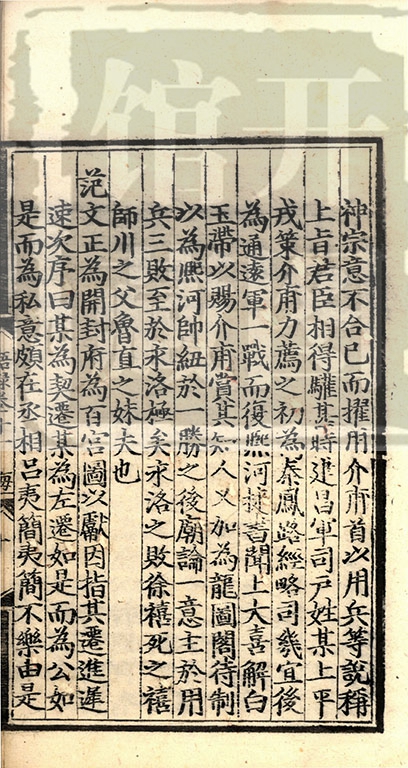 神宗意不合已而擢用介甫首以用兵等說稱
上旨君臣相得驩甚時建昌軍司戶姓某上平
戎策介甫力薦之初為秦鳳路經略司幾宜後
為通遠軍一戰而復熙河捷書聞上大喜解白
玉帶以賜介甫賞其知人又加為龍圖閣待制
以為熙河帥紐於一勝之後廟論一意主於用
兵三敗至於永洛極矣永洛之敗徐禧死之禧
師川之父魯直之妹夫也
范文正為開封府為百官圖以獻因指其遷進遲
速次序曰某為契遷某為左遷如是而為公如
是而為私意頗在丞相呂夷簡夷簡不樂由是
語錄卷十一
开馆